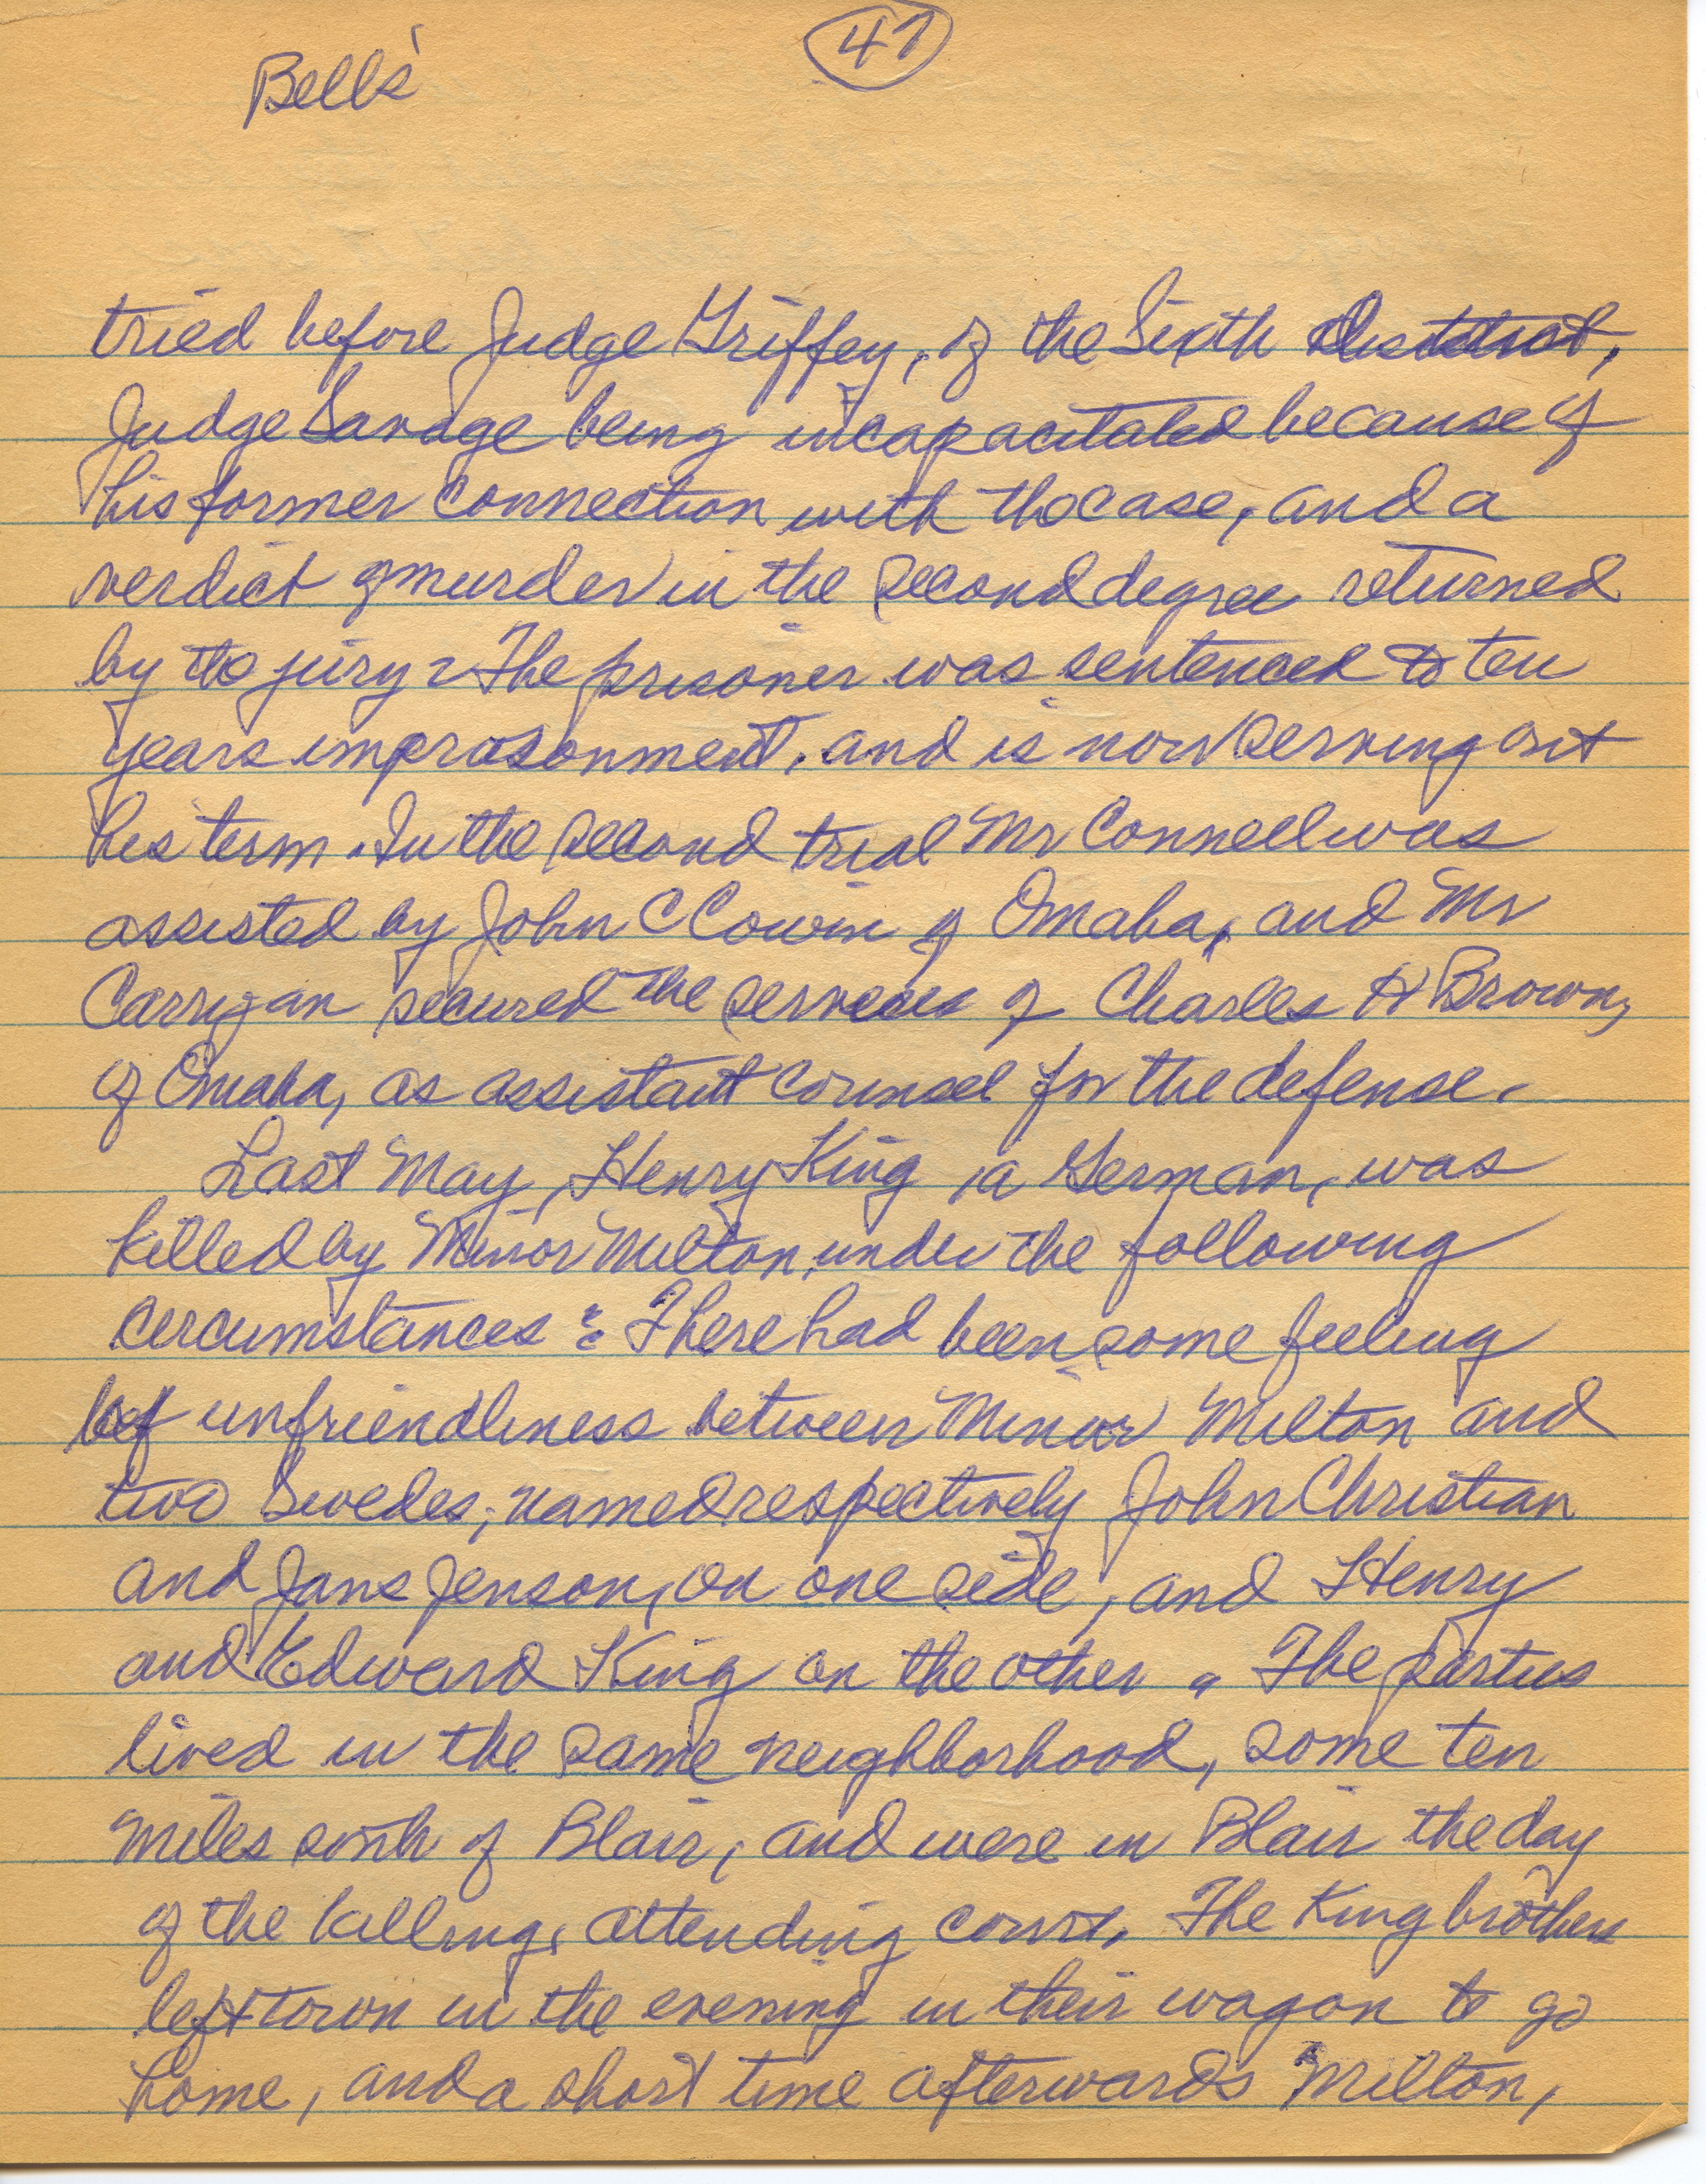 47
Bell's
tried before Judge Griffey, of the Sixth District,
Judge Savage being incapacitated because of
his former connection with the case, and a
verdict of murder in the second degree returned
by the jury. The prisoner was sentenced to ten
years imprisonment, and is now serving out
his term. In the second trial Mr Connell was
assisted by John C Cowin of Omaha, and Mr
Carrigan secured the services of Charles H Brown,
of Omaha, as assistant counsel for the defense.
Last May, Henry King, a German, was
killed by Minor Milton, under the following
circumstances: There had been some feeling
of unfriendliness between Minor Milton and
two Swedes, named respectively John Christian
and Jans Jenson, on one side, and Henry
and Edward King on the other. The parties
lived in the same neighborhood, some ten
miles south of Blair, and were in Blair the day
of the killing, attending court. The King brothers
left town in the evening in their wagon to go
home, and a short time afterwards Milton,